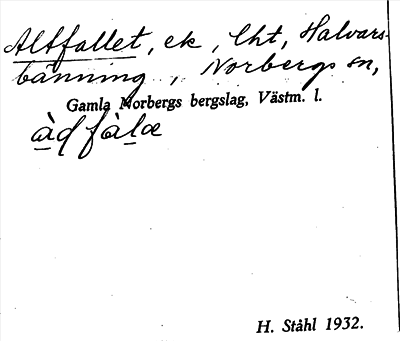 Altfallet, ek, lht, Halvars-
bänning, Norbergs sn,
Gamla Norbergs bergslag, Västm. l.
àd fàlæ
H. Ståhl 1932.